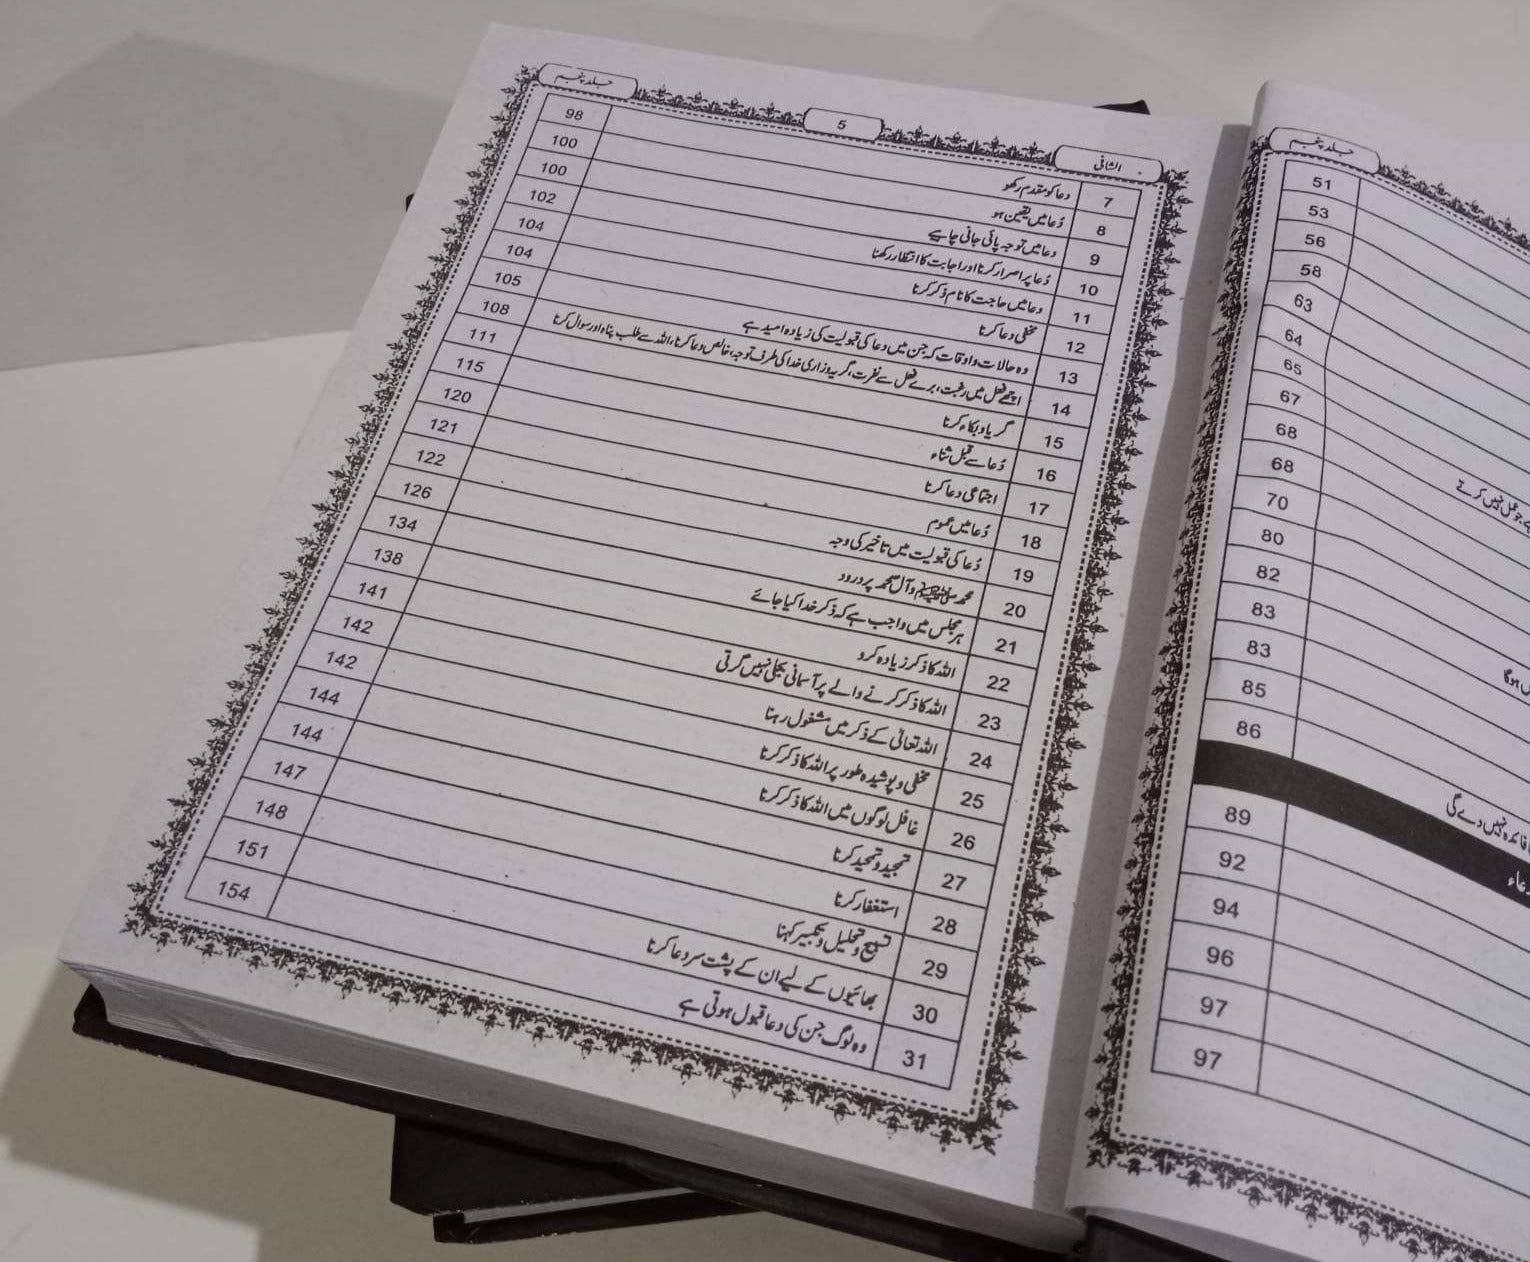 الشافی 5 جلد پنجم
7 دعا کو مقدم رکھو 98
8 دُعا میں یقین ہو 100
9 دعا میں توجہ پائی جانی چاہیے 100
10 دُعا پر اصرار کرنا اور اجابت کا انتظار رکھنا 102
11 دعا میں حاجت کا نام ذکر کرنا 104
12 مخفی دعا کرنا 104
13 وہ حالات و اوقات کہ جن میں دعا کی قبولیت کی زیادہ امید ہے 105
14 اچھے فعل میں رغبت، برے فعل سے نفرت، گریہ و زاری خدا کی طرف توجہ، خالص دعا کرنا، اللہ سے طلب پناہ اور سوال کرنا 108
15 گریا و بکاء کرنا 111
16 دُعا سے قبل ثناء 115
17 اجتماعی دعا کرنا 120
18 دُعا میں عموم 121
19 دُعا کی قبولیت میں تاخیر کی وجہ 122
20 محمد ﷺ وآل محمد پر درود 126
21 ہر مجلس میں واجب ہے کہ ذکر خدا کیا جائے 134
22 اللہ کا ذکر زیادہ کرو 138
23 اللہ کا ذکر کرنے والے پر آسمانی بجلی نہیں گرتی 141
24 اللہ تعالیٰ کے ذکر میں مشغول رہنا 142
25 مخفی و پوشیدہ طور پر اللہ کا ذکر کرنا 142
26 غافل لوگوں میں اللہ کا ذکر کرنا 144
27 تمجید و تحمید کرنا 144
28 استغفار کرنا 147
29 تسبیح و تحلیل و تکبیر کہنا 148
30 بھائیوں کے لیے ان کے پشت سر دعا کرنا 151
31 وہ لوگ جن کی دعا قبول ہوتی ہے 154
جلد پنجم
51
53
56
58
63
64
65
67
68
68
جو عمل نہیں کرتے 70
80
82
83
83
ہوگا 85
86
فائدہ نہیں دے گی
89
92
94
96
97
97